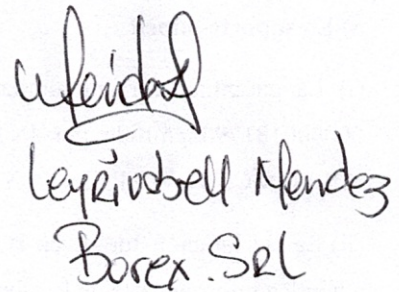 Leyrivdsell Mendez
Borex. SRL